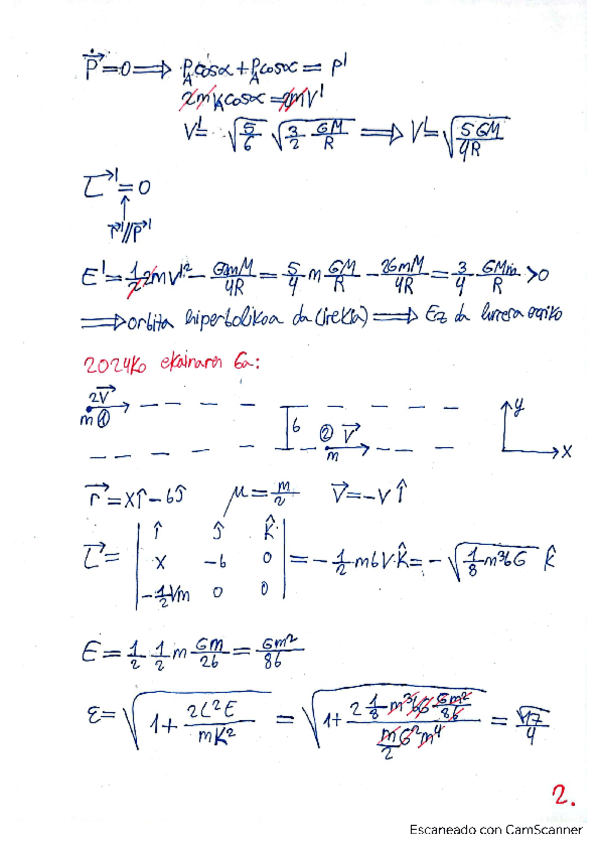 Ṗ⃗=0 ⟹ P_A cosα + P_A cosα = P'
2mV_A cosα = 2mV'
V' = √(5/6) √(3/2 GM/R) ⟹ V' = √(5GM/4R)
L⃗' = 0
↑
r⃗'//P⃗'
E' = 1/2 2mV'² - G2mM/4R = 5/4 m GM/R - 2GmM/4R = 3/4 GMm/R > 0
⟹ orbita hiperbolikoa da (irekia) ⟹ Ez da lurrera eroriko
2024ko ekainaren 6a:
2V⃗
m ①
b ② V⃗
m
y
x
r⃗ = xî - bĵ μ = m/2 V⃗ = -Vî
L⃗ = | î ĵ k̂ ; x -b 0 ; -1/2 Vm 0 0 | = -1/2 mbV k̂ = -√(1/8 m³bG) k̂
E = 1/2 1/2 m Gm/2b = Gm²/8b
ε = √(1 + 2L²E/mK²) = √(1 + (2 1/8 m³bG Gm²/8b)/(m/2 G²m⁴)) = √17/4
2.
Escaneado con CamScanner